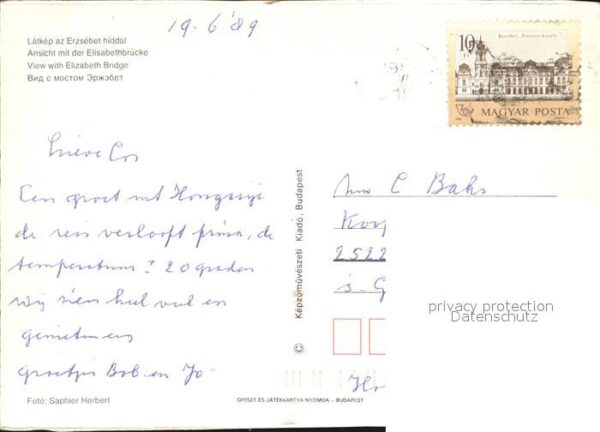 19-6'89
Látkép az Erzsébet híddal
Ansicht mit der Elisabethbrücke
View with Elizabeth Bridge
Вид с мостом Эржэбет
10 Ft
MAGYAR POSTA
Lieve Cor
Een groet uit Hongarije
de reis verloopt prima, de
temperatuur ± 20 graden
wij zien heel veel en
genieten
groetjes Bob en Jo
C Bahs
Koop
2522
's-G
Ho
© Képzőművészeti Kiadó, Budapest
privacy protection
Datenschutz
Fotó: Saphier Herbert
OFFSET ÉS JÁTÉKKÁRTYA NYOMDA – BUDAPEST